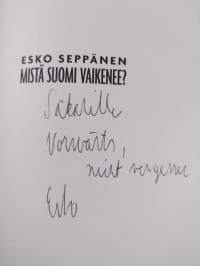 ESKO SEPPÄNEN
MISTÄ SUOMI VAIKENEE?
Säkarille
Vorwärts,
nicht vergessen
Esko